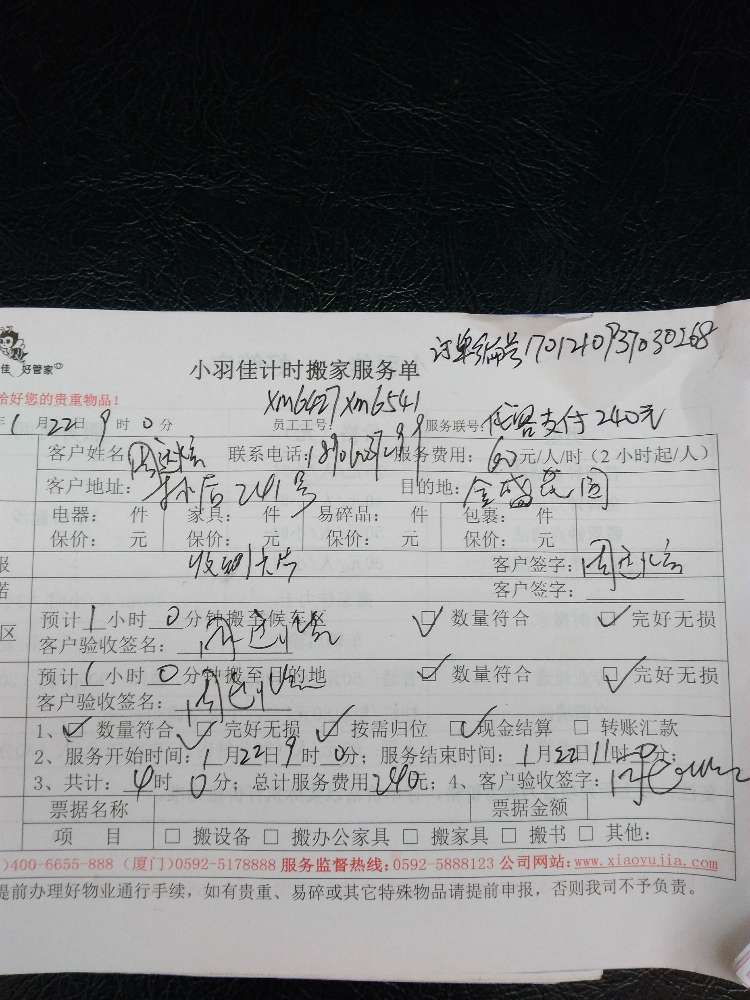 订单编号1701210937030268
佳 好管家
小羽佳计时搬家服务单
恰好您的贵重物品！
xm6427 xm6541
年1月22日9时0分 员工工号： 服务联号： 支付240元
客户姓名： 联系电话： 服务费用：60元/人/时（2小时起/人）
客户地址： 后241号 目的地：金盛花园
电器： 件 家具： 件 易碎品： 件 包裹： 件
保价： 元 保价： 元 保价： 元 保价： 元
报 收到1卡片 客户签字：
诺 客户签字：
区 预计1小时0分钟搬至候车区 □ 数量符合 □ 完好无损
客户验收签名：
预计1小时0分钟搬至目的地 □ 数量符合 □ 完好无损
客户验收签名：
1、□ 数量符合 □ 完好无损 □ 按需归位 □ 现金结算 □ 转账汇款
2、服务开始时间：1月22日9时0分；服务结束时间：1月22日11时0分；
3、共计：4时0分；总计服务费用240元；4、客户验收签字：
票据名称 票据金额
项 目 □ 搬设备 □ 搬办公家具 □ 搬家具 □ 搬书 □ 其他：
)400-6655-888（厦门)0592-5178888 服务监督热线:0592-5888123 公司网站:www.xiaoyujia.com
提前办理好物业通行手续，如有贵重、易碎或其它特殊物品请提前申报，否则我司不予负责。